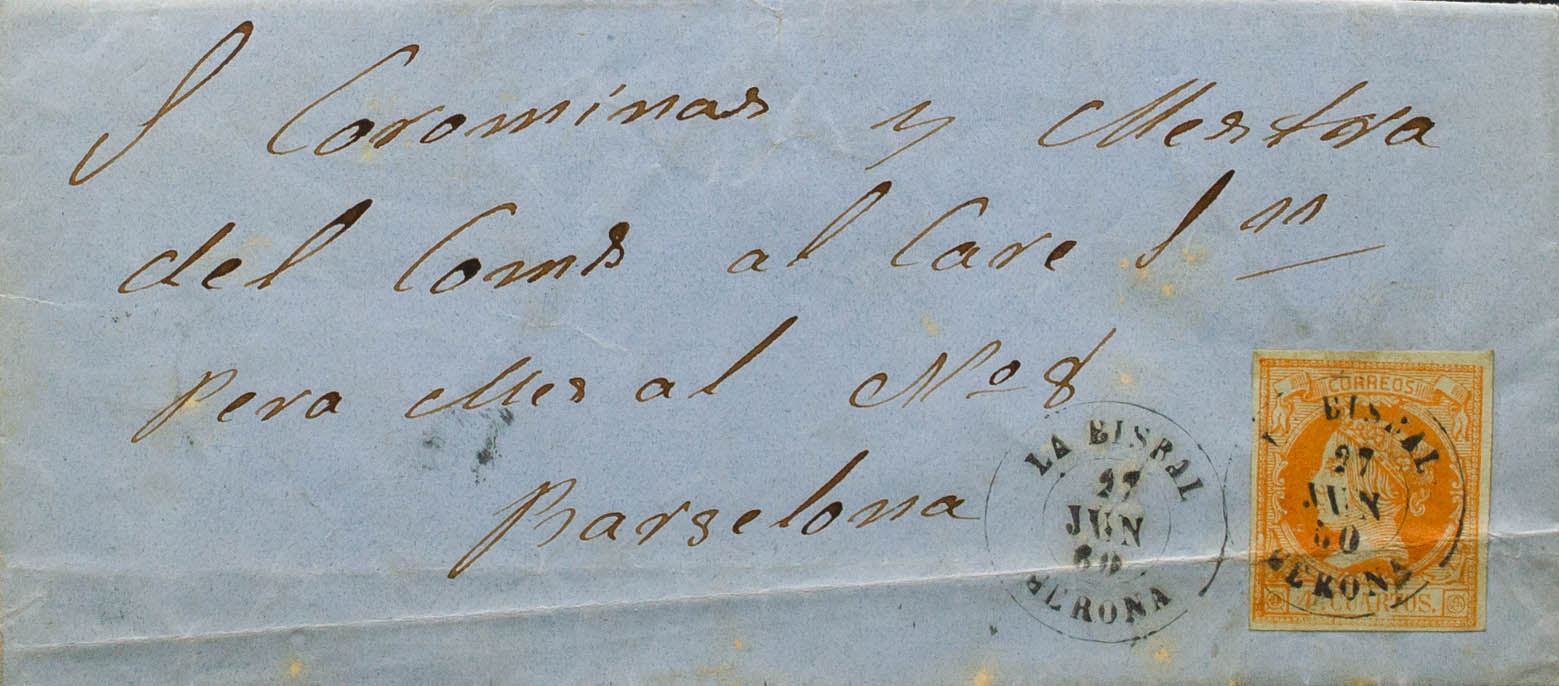 S Corominas y Mestra
del Coms al Care Sn
pera Mes al No 8
Barselona
LA BISBAL
27
JUN
60
GERONA
CORREOS
LA BISBAL
27
JUN
60
GERONA
4 CUARTOS.